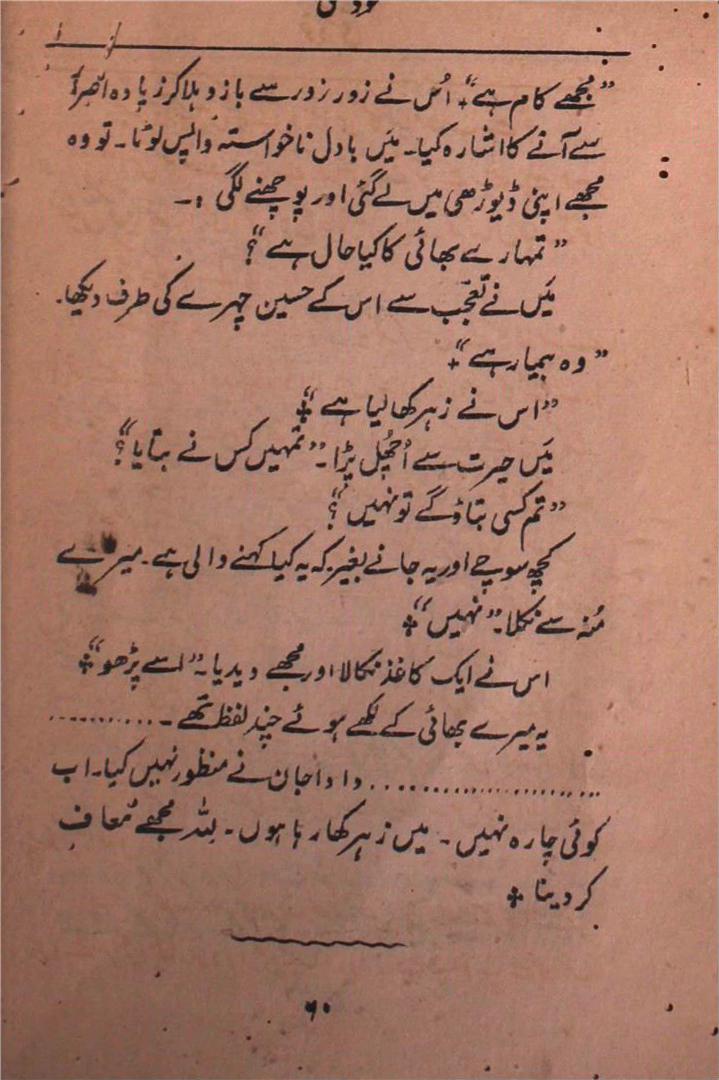 ”مجھے کام ہے“۔ اُس نے زور زور سے بازو ہلا کر زیادہ اصرار
سے آنے کا اشارہ کیا۔ میَں بادل ناخواستہ واپس لوٹا۔ تو وہ
مجھے اپنی ڈیوڑھی میں لے گئی اور پوچھنے لگی :۔
”تمہارے بھائی کا کیا حال ہے“؟
میَں نے تعجّب سے اس کے حسین چہرے کی طرف دیکھا۔
”وہ بیمار ہے“۔
”اس نے زہر کھا لیا ہے“۔
میَں حیرت سے اُچھل پڑا۔ ”تمہیں کس نے بتایا“؟
”تم کسی بتاؤ گے تو نہیں“؟
کچھ سوچے اور یہ جانے بغیر کہ یہ کیا کہنے والی ہے۔ میرے
مُنہ سے نکلا۔ ”نہیں“۔
اس نے ایک کاغذ نکالا اور مجھے دیدیا۔ ”اسے پڑھو“۔
یہ میرے بھائی کے لکھے ہوئے چند لفظ تھے۔ ..........
...................... دادا جان نے منظور نہیں کیا۔ اب
کوئی چارہ نہیں۔ میں زہر کھا رہا ہوں۔ للہ مجھے مُعاف
کر دینا۔
۶۰